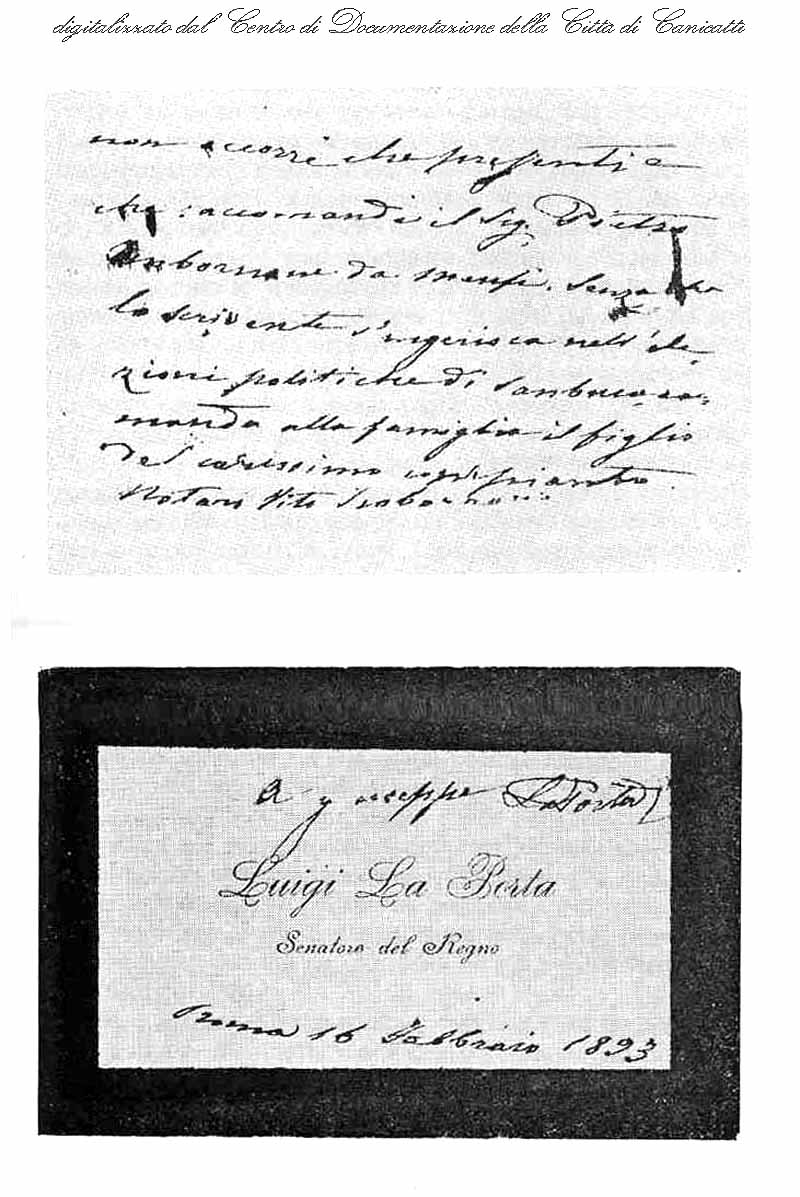 digitalizzato dal Centro di Documentazione della Città di Canicattì
non occorre che presenti e
che raccomandi il Sig. Pietro
da Menfi. Senza che
lo scrivente s'ingerisca nell'ele-
zioni politiche di Sambuca, co-
manda alla famiglia il figlio
del carissimo compianto
Notaro Vito
A Giuseppe La Porta
Luigi La Porta
Senatore del Regno
Roma 16 Febbraio 1893